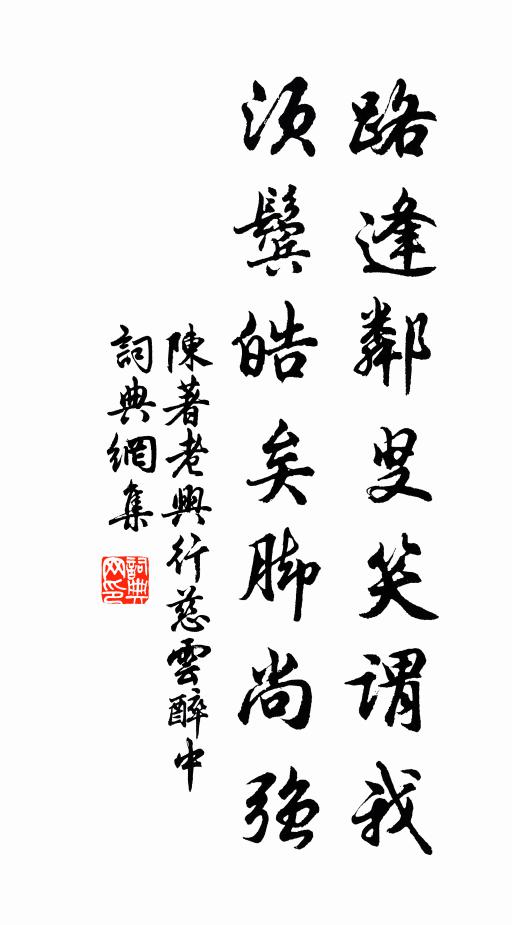 路逢鄰叟笑謂我
須鬢皓矣脚尚強
陳著老興行慈雲醉中
詞典網集
詞典網印